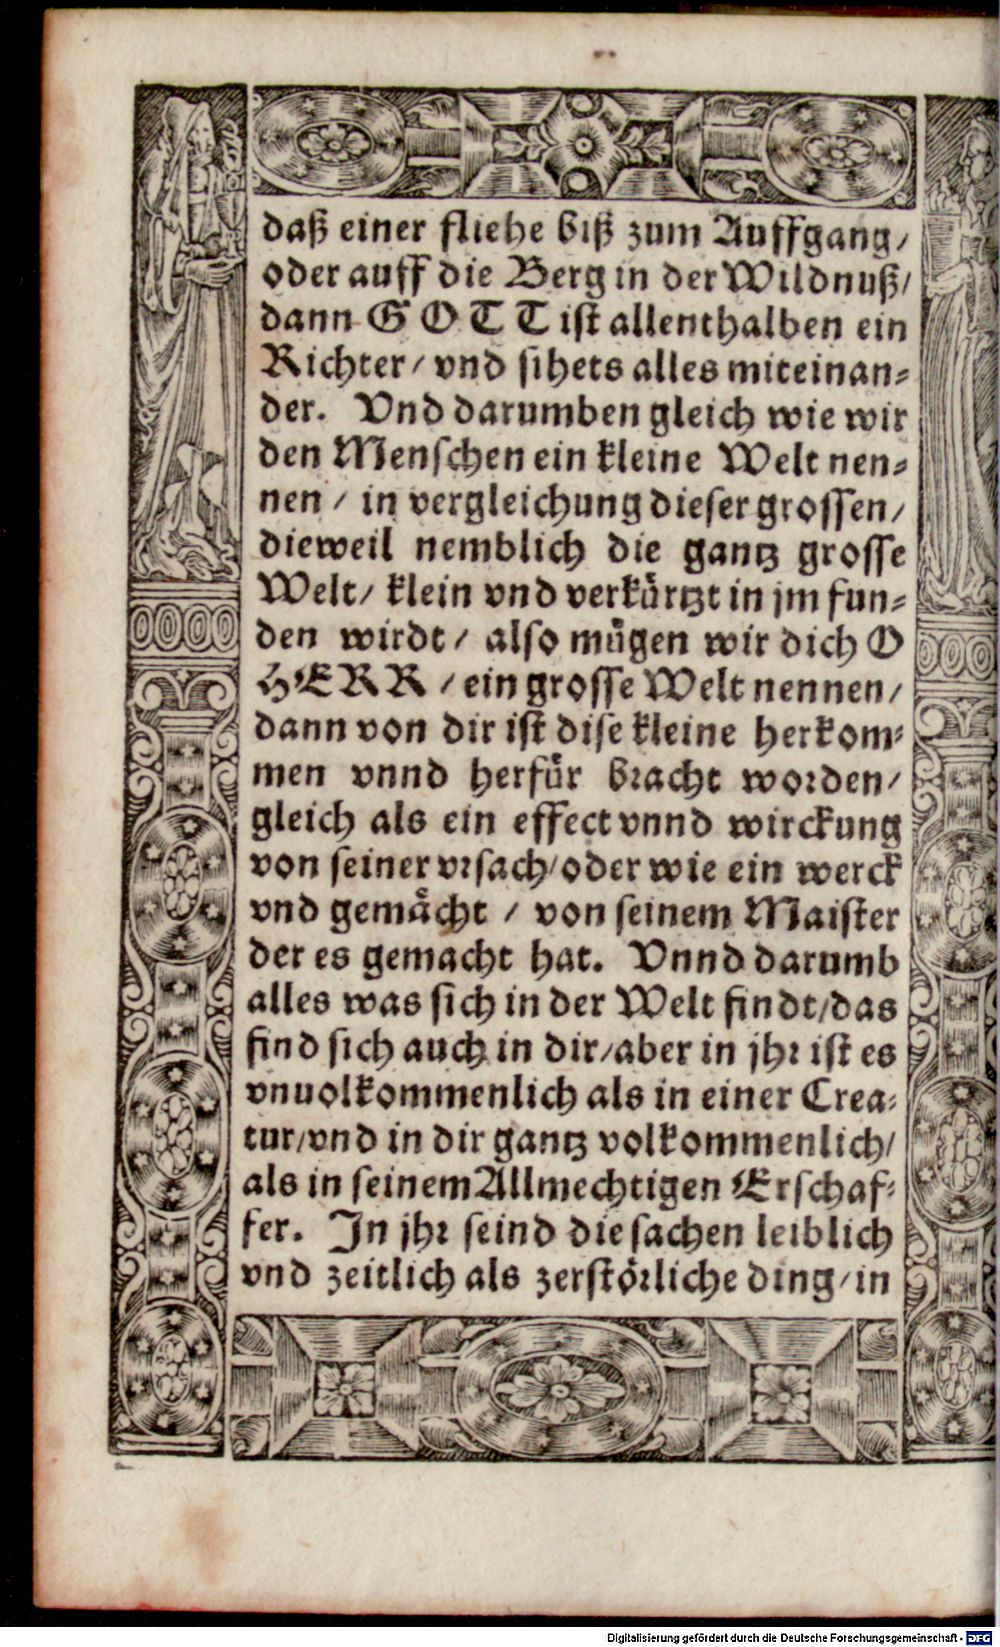 daß einer fliehe biß zum Auffgang/
oder auff die Berg in der Wildnuß/
dann GOTT ist allenthalben ein
Richter/ vnd sihets alles miteinan-
der. Vnd darumben gleich wie wir
den Menschen ein kleine Welt nen-
nen/ in vergleichung dieser grossen/
dieweil nemblich die gantz grosse
Welt/ klein vnd verkürtzt in jm fun-
den wirdt/ also mügen wir dich O
HERR/ ein grosse Welt nennen/
dann von dir ist dise kleine herkom-
men vnnd herfür bracht worden/
gleich als ein effect vnnd wirckung
von seiner vrsach/ oder wie ein werck
vnd gemächt/ von seinem Maister
der es gemacht hat. Vnnd darumb
alles was sich in der Welt findt/ das
find sich auch in dir/ aber in jhr ist es
vnuolkommenlich als in einer Crea-
tur/ vnd in dir gantz volkommenlich/
als in seinem Allmechtigen Erschaf-
fer. In jhr seind die sachen leiblich
vnd zeitlich als zerstörliche ding/ in
Digitalisierung gefördert durch die Deutsche Forschungsgemeinschaft - DFG